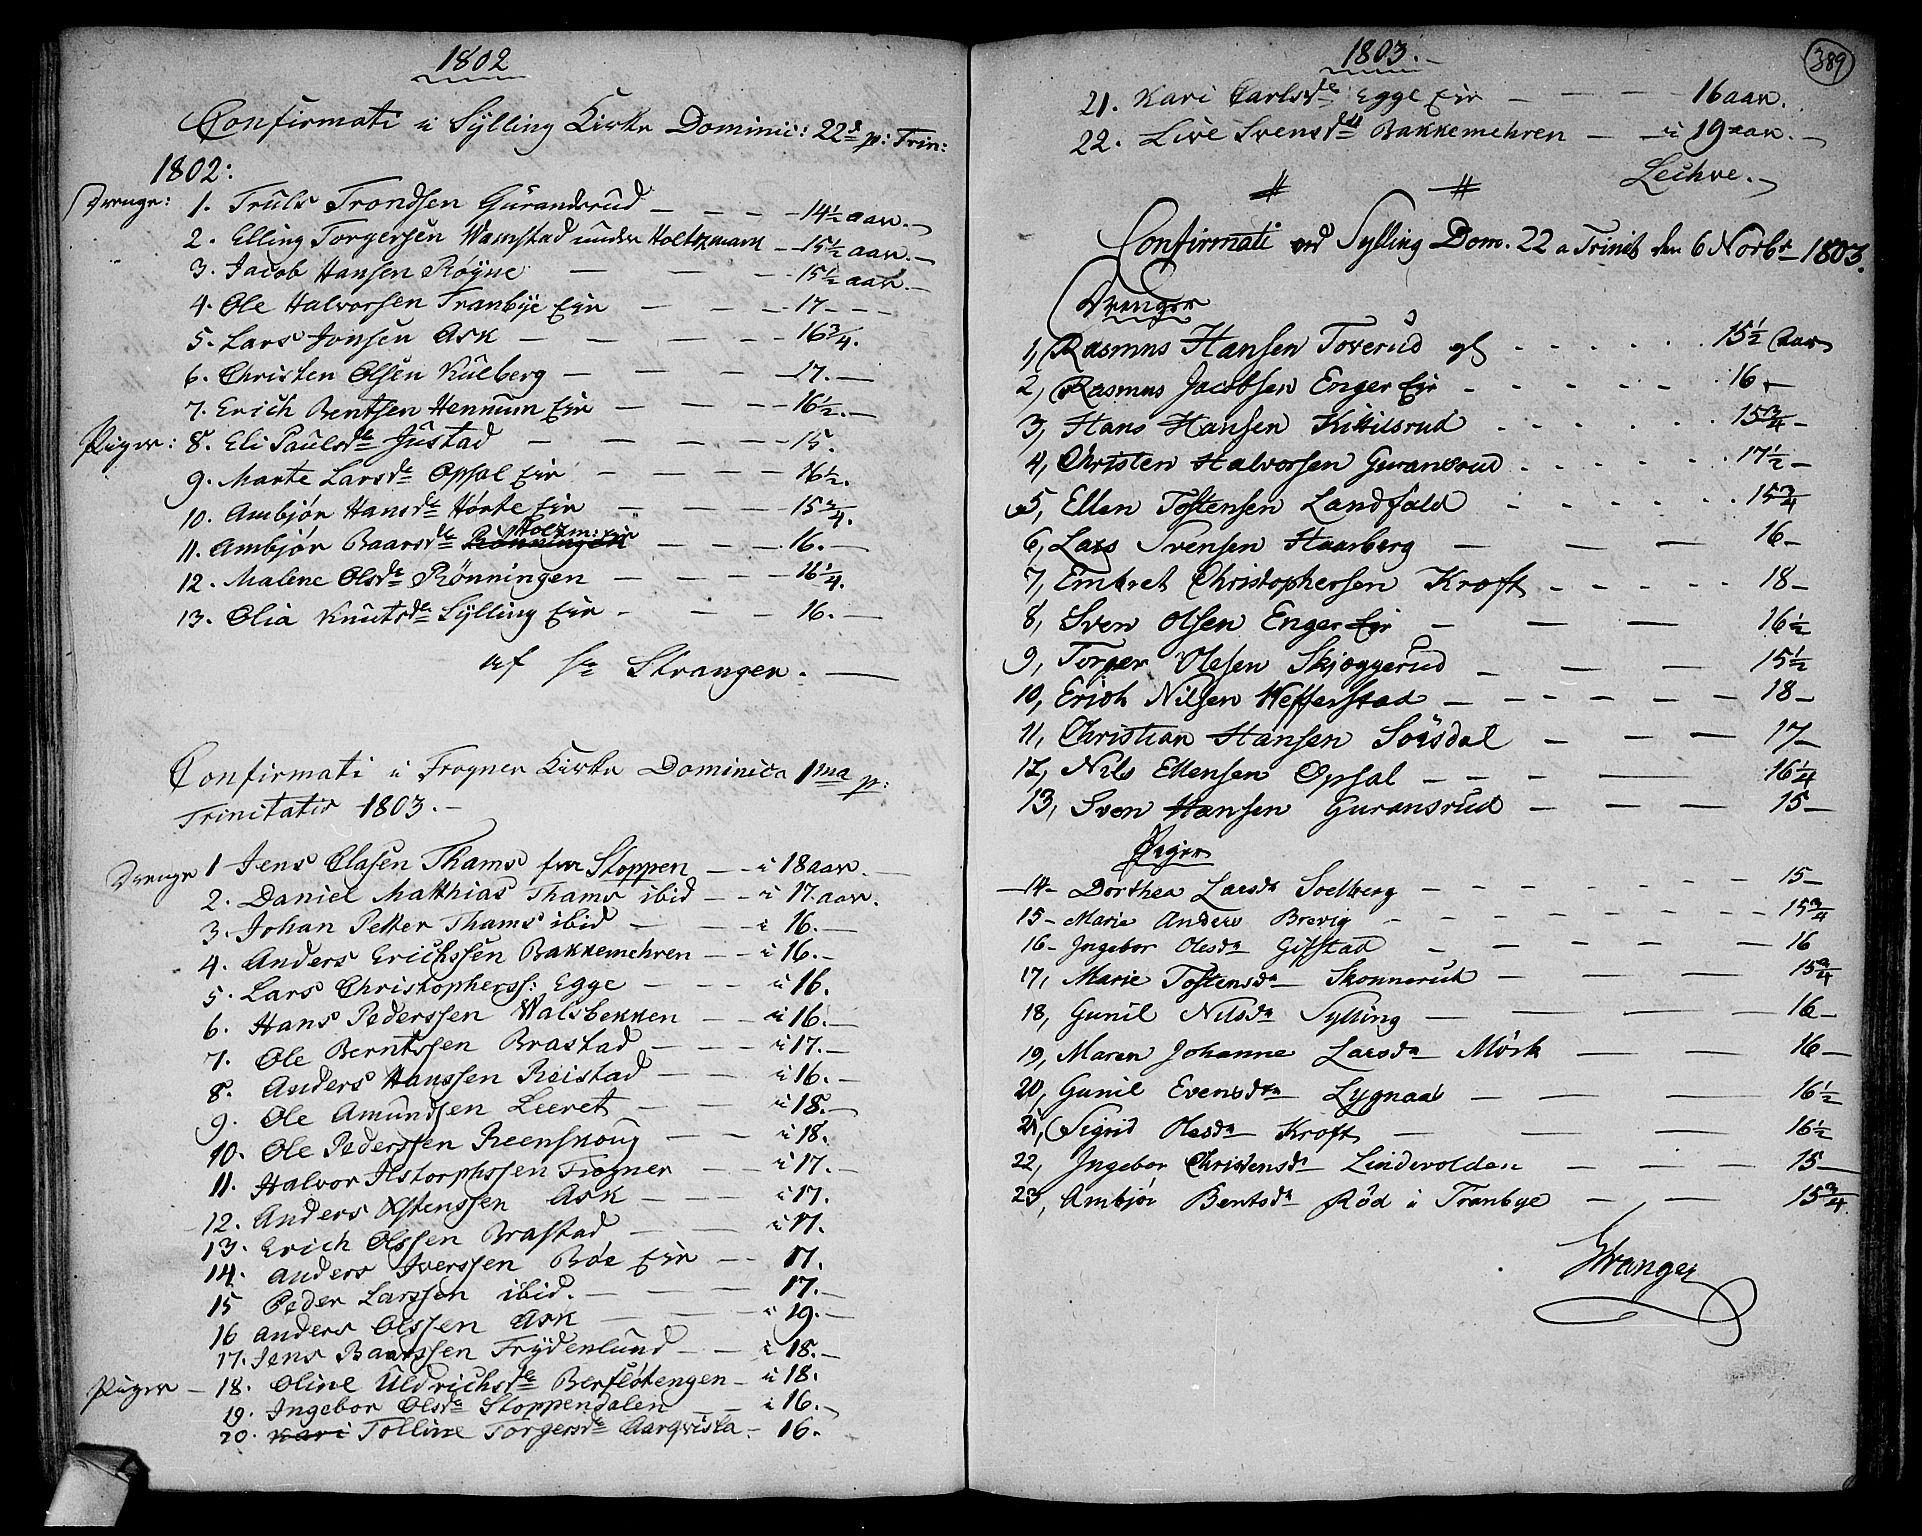 1802
Confirmati i Sÿlling Kirke Dominic: 22d p: Trin:
1802:
Drenge: 1. Truls Trondsen Guransrud — — — 14½ aar.
2. Elling Torgersen Wamstad under Holtzmark — 15½ aar.
3. Jacob Hansen Røÿne — — — 15½ aar.
4. Ole Halvorsen Tranbÿe Eir — — — 17 - - -
5. Lars Jonsen Ask — — — 16¾.
6. Christen Olsen Kulberg — — — 17. —
7. Erich Bentsen Hennum Eir — — — 16½. —
Piger: 8. Eli Paulsdr Justad — — — 15.
9. Marte Larsdr Opsal Eir — — — 16½.
10. Ambjør Hansdr Hørte Eir — — — 15¾.
11. Ambjør Baarsdr Rönningen Holzm: Eir — — 16. —
12. Malene Olsdr Rönningen — — — 16¼.
13. Olia Knutsdr Sÿlling Eir — — — 16. —
af Hr Stranger. —
Confirmati i Frogner Kirke Dominica 1ma p:
Trinitatis 1803. —
Drenge 1 Jens Clasen Thams fra Stoppen — i 18 aar.
2. Daniel Matthias Thams ibid — i 17. aar.
3. Johan Petter Thams ibid — i 16. —
4. Anders Erichssen Bakkemehren — i 16. —
5. Lars Christopherss: Egge — i 16.
6. Hans Pederssen Walsbekken — i 16. —
7. Ole Berntssen Brastad — i 17. —
8. Anders Hanssen Reistad — i 16. —
9. Ole Amundsen Leeret — i 18. —
10. Ole Pederssen Reenskoug — i 18.
11. Halvor Istorphssen Frogner — i 17. —
12. Anders Ostenssen Ask — i 17.
13. Erich Olssen Brastad — i 17.
14. Anders Iverssen Böe Eir — 17.
15 Peder Larssen ibid. — 17. —
16 Anders Olssen Ask — i 19. —
17. Jens Baarssen Frÿdenlund — i 18. —
Piger — 18. Oline Uldrichsdr Berflötengen — i 18.
19. Ingebor Olsdr Stoppendalen — i 16. —
20. Kari Tolline Torgersdr Aarqvisla — 16.
1803. —
389
21. Kari Carlsdr Egge Eir — 16 aar.
22. Live Svensdr Bakkemehren — i 19 aar. —
Lechve. —
Confirmati ved Sylling Dom. 22 a Trinit den 6 Novbr 1803.
Drenger
1, Rasmus Hansen Toverud 15½ Aar
2, Rasmus Jacobsen Enger Eir 16 —
3, Hans Hansen Kittilsrud 15¾ —
4, Christen Halvorsen Guransrud 17½ —
5, Ellen Tostensen Landfald 15¾
6, Lars Svensen Haarberg — — — 16 —
7, Embret Christophersen Kroft 18 —
8, Sven Olsen Enger Eir — — — 16½
9, Torger Olesen Skjæggerud — — — 15½
10, Erich Nilsen Hefferstad — — 18 —
11, Christian Hansen Sörsdal — — — 17 —
12, Nils Ellensen Opsal — — — 16¼
13, Sven Hansen Guransrud — — — 15 —
Piger
14 — Dorthea Larsdr Soelberg 15 —
15 — Marie Anders Brevig 15¾
16 — Ingebor Olesdr Gifstad 16
17, Marie Tostensdr Skonnerud 15¾
18, Gunil Nilsdr Sylling — — 16 —
19, Maren Johanne Larsdr Mörk — — 16 —
20, Gunil Evensdr Lygnaas — — 16½
21, Sigrid Olesdr Kroft — — 16½
22, Ingebor Christensdr Lindevolden — — 15 —
23, Ambjør Bentsdr Röd i Tranbye — — 15¾
Stranger